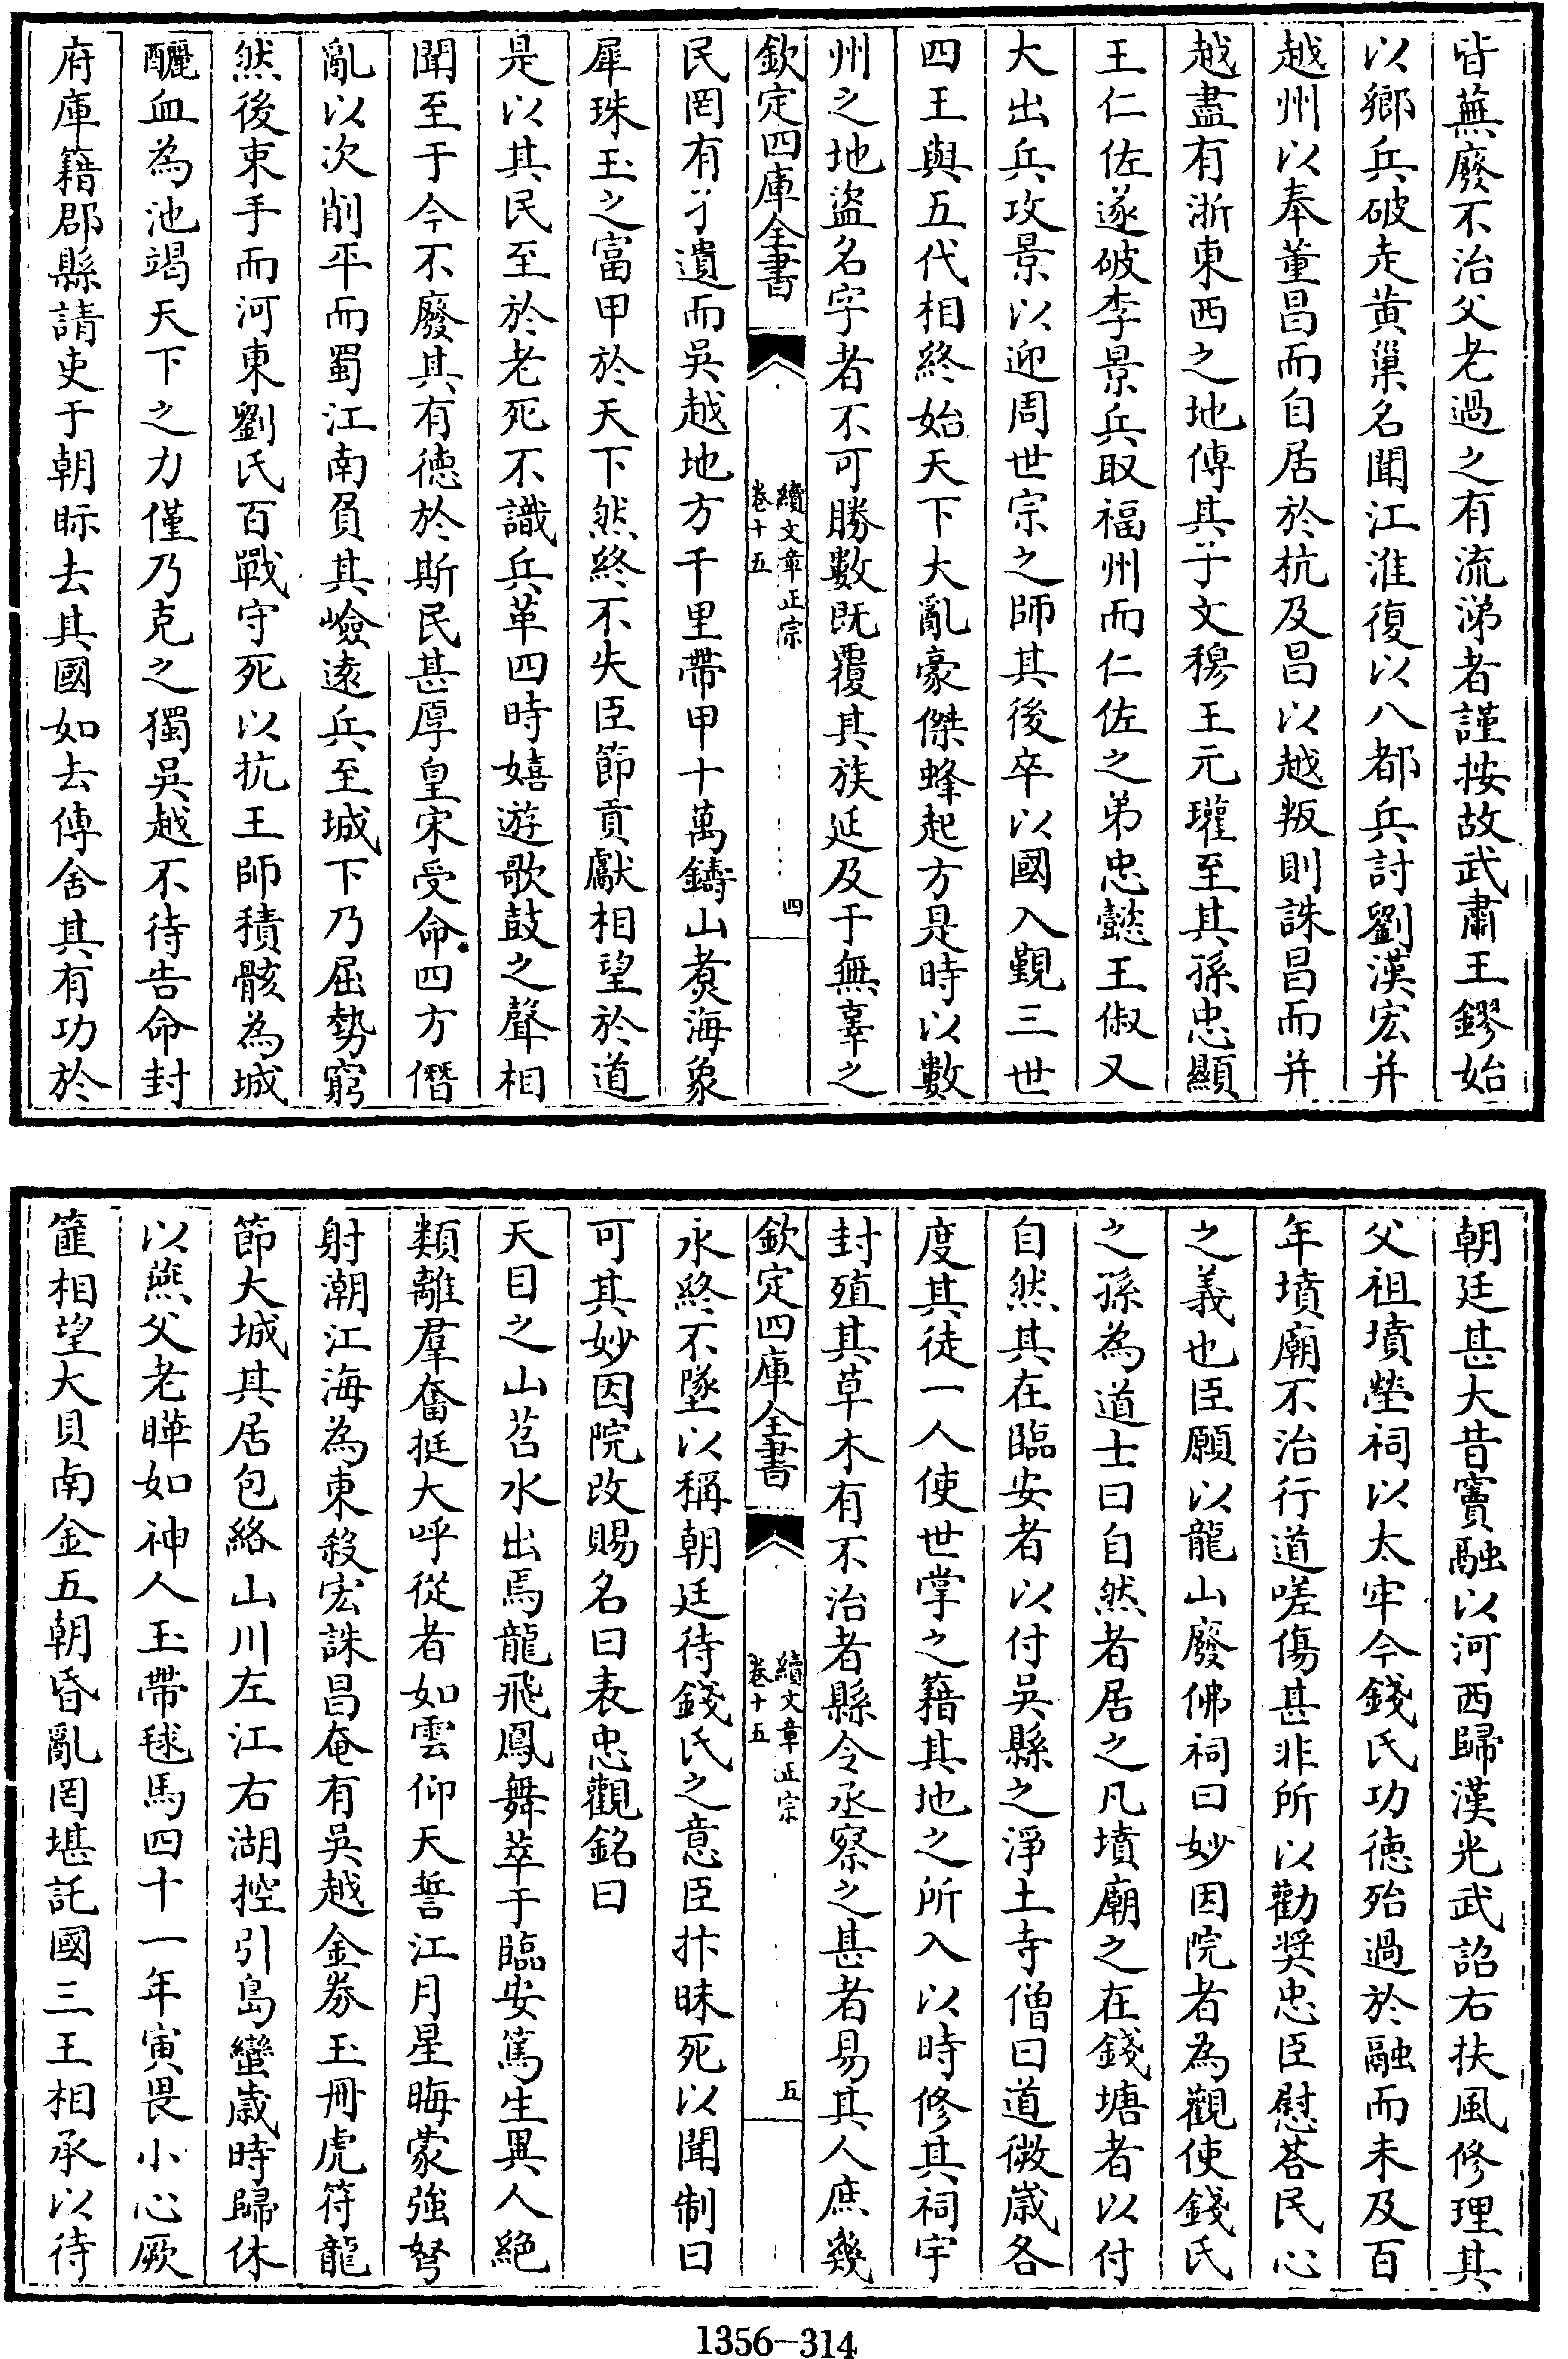 皆蕪廢不治父老過之有流涕者謹按故武肅王鏐始
以鄉兵破走黄巢名聞江淮復以八都兵討劉漢宏并
越州以奉董昌而自居於杭及昌以越叛則誅昌而并
越盡有浙東西之地傳其子文穆王元瓘至其孫忠顯
王仁佐遂破李景兵取福州而仁佐之弟忠懿王俶又
大出兵攻景以迎周世宗之師其後卒以國入覲三世
四王與五代相終始天下大亂豪傑蜂起方是時以數
州之地盜名字者不可勝數既覆其族延及于無辜之
欽定四庫全書
續文章正宗
卷十五
四
民罔有孑遺而吳越地方千里帶甲十萬鑄山煑海象
犀珠玉之富甲於天下然終不失臣節貢獻相望於道
是以其民至於老死不識兵革四時嬉遊歌鼓之聲相
聞至于今不廢其有德於斯民甚厚皇宋受命四方僭
亂以次削平而蜀江南負其嶮遠兵至城下乃屈勢窮
然後束手而河東劉氏百戰守死以抗王師積骸為城
釃血為池竭天下之力僅乃克之獨吳越不待告命封
府庫籍郡縣請吏于朝眎去其國如去傳舍其有功於
朝廷甚大昔竇融以河西歸漢光武詔右扶風修理其
父祖墳塋祠以太牢今錢氏功德殆過於融而未及百
年墳廟不治行道嗟傷甚非所以勸奬忠臣慰荅民心
之義也臣願以龍山廢佛祠曰妙因院者為觀使錢氏
之孫為道士曰自然者居之凡墳廟之在錢塘者以付
自然其在臨安者以付吳縣之淨土寺僧曰道微嵗各
度其徒一人使世掌之籍其地之所入以時修其祠宇
封殖其草木有不治者縣令丞察之甚者易其人庶幾
欽定四庫全書
續文章正宗
卷十五
五
永終不墜以稱朝廷待錢氏之意臣抃昧死以聞制曰
可其妙因院改賜名曰表忠觀銘曰
天目之山苕水出焉龍飛鳳舞萃于臨安篤生異人絶
類離羣奮挺大呼從者如雲仰天誓江月星晦蒙強弩
射潮江海為東殺宏誅昌奄有吳越金券玉冊虎符龍
節大城其居包絡山川左江右湖控引島蠻嵗時歸休
以燕父老曄如神人玉帶毬馬四十一年寅畏小心厥
篚相望大貝南金五朝昏亂罔堪託國三王相承以待
1356-314